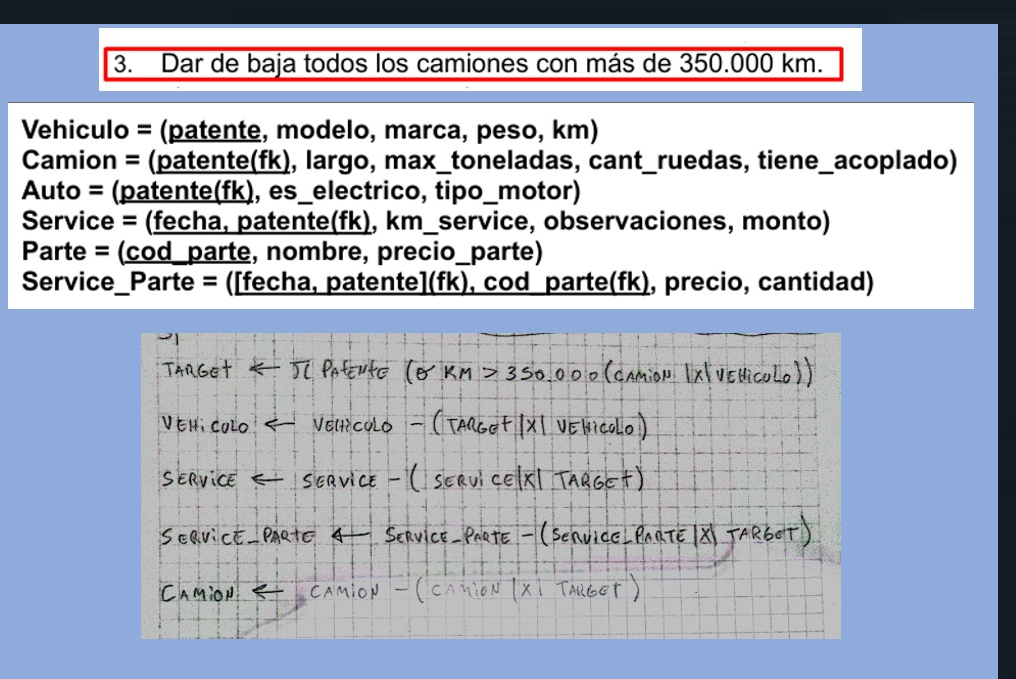 3. Dar de baja todos los camiones con más de 350.000 km.
Vehiculo = (patente, modelo, marca, peso, km)
Camion = (patente(fk), largo, max_toneladas, cant_ruedas, tiene_acoplado)
Auto = (patente(fk), es_electrico, tipo_motor)
Service = (fecha, patente(fk), km_service, observaciones, monto)
Parte = (cod_parte, nombre, precio_parte)
Service_Parte = ([fecha, patente](fk), cod_parte(fk), precio, cantidad)
TARGET ← π PATENTE (σ KM > 350.000 (CAMION |X| VEHICULO))
VEHICULO ← VEHICULO - (TARGET |X| VEHICULO)
SERVICE ← SERVICE - (SERVICE |X| TARGET)
SERVICE_PARTE ← SERVICE_PARTE - (SERVICE_PARTE |X| TARGET)
CAMION ← CAMION - (CAMION |X| TARGET)